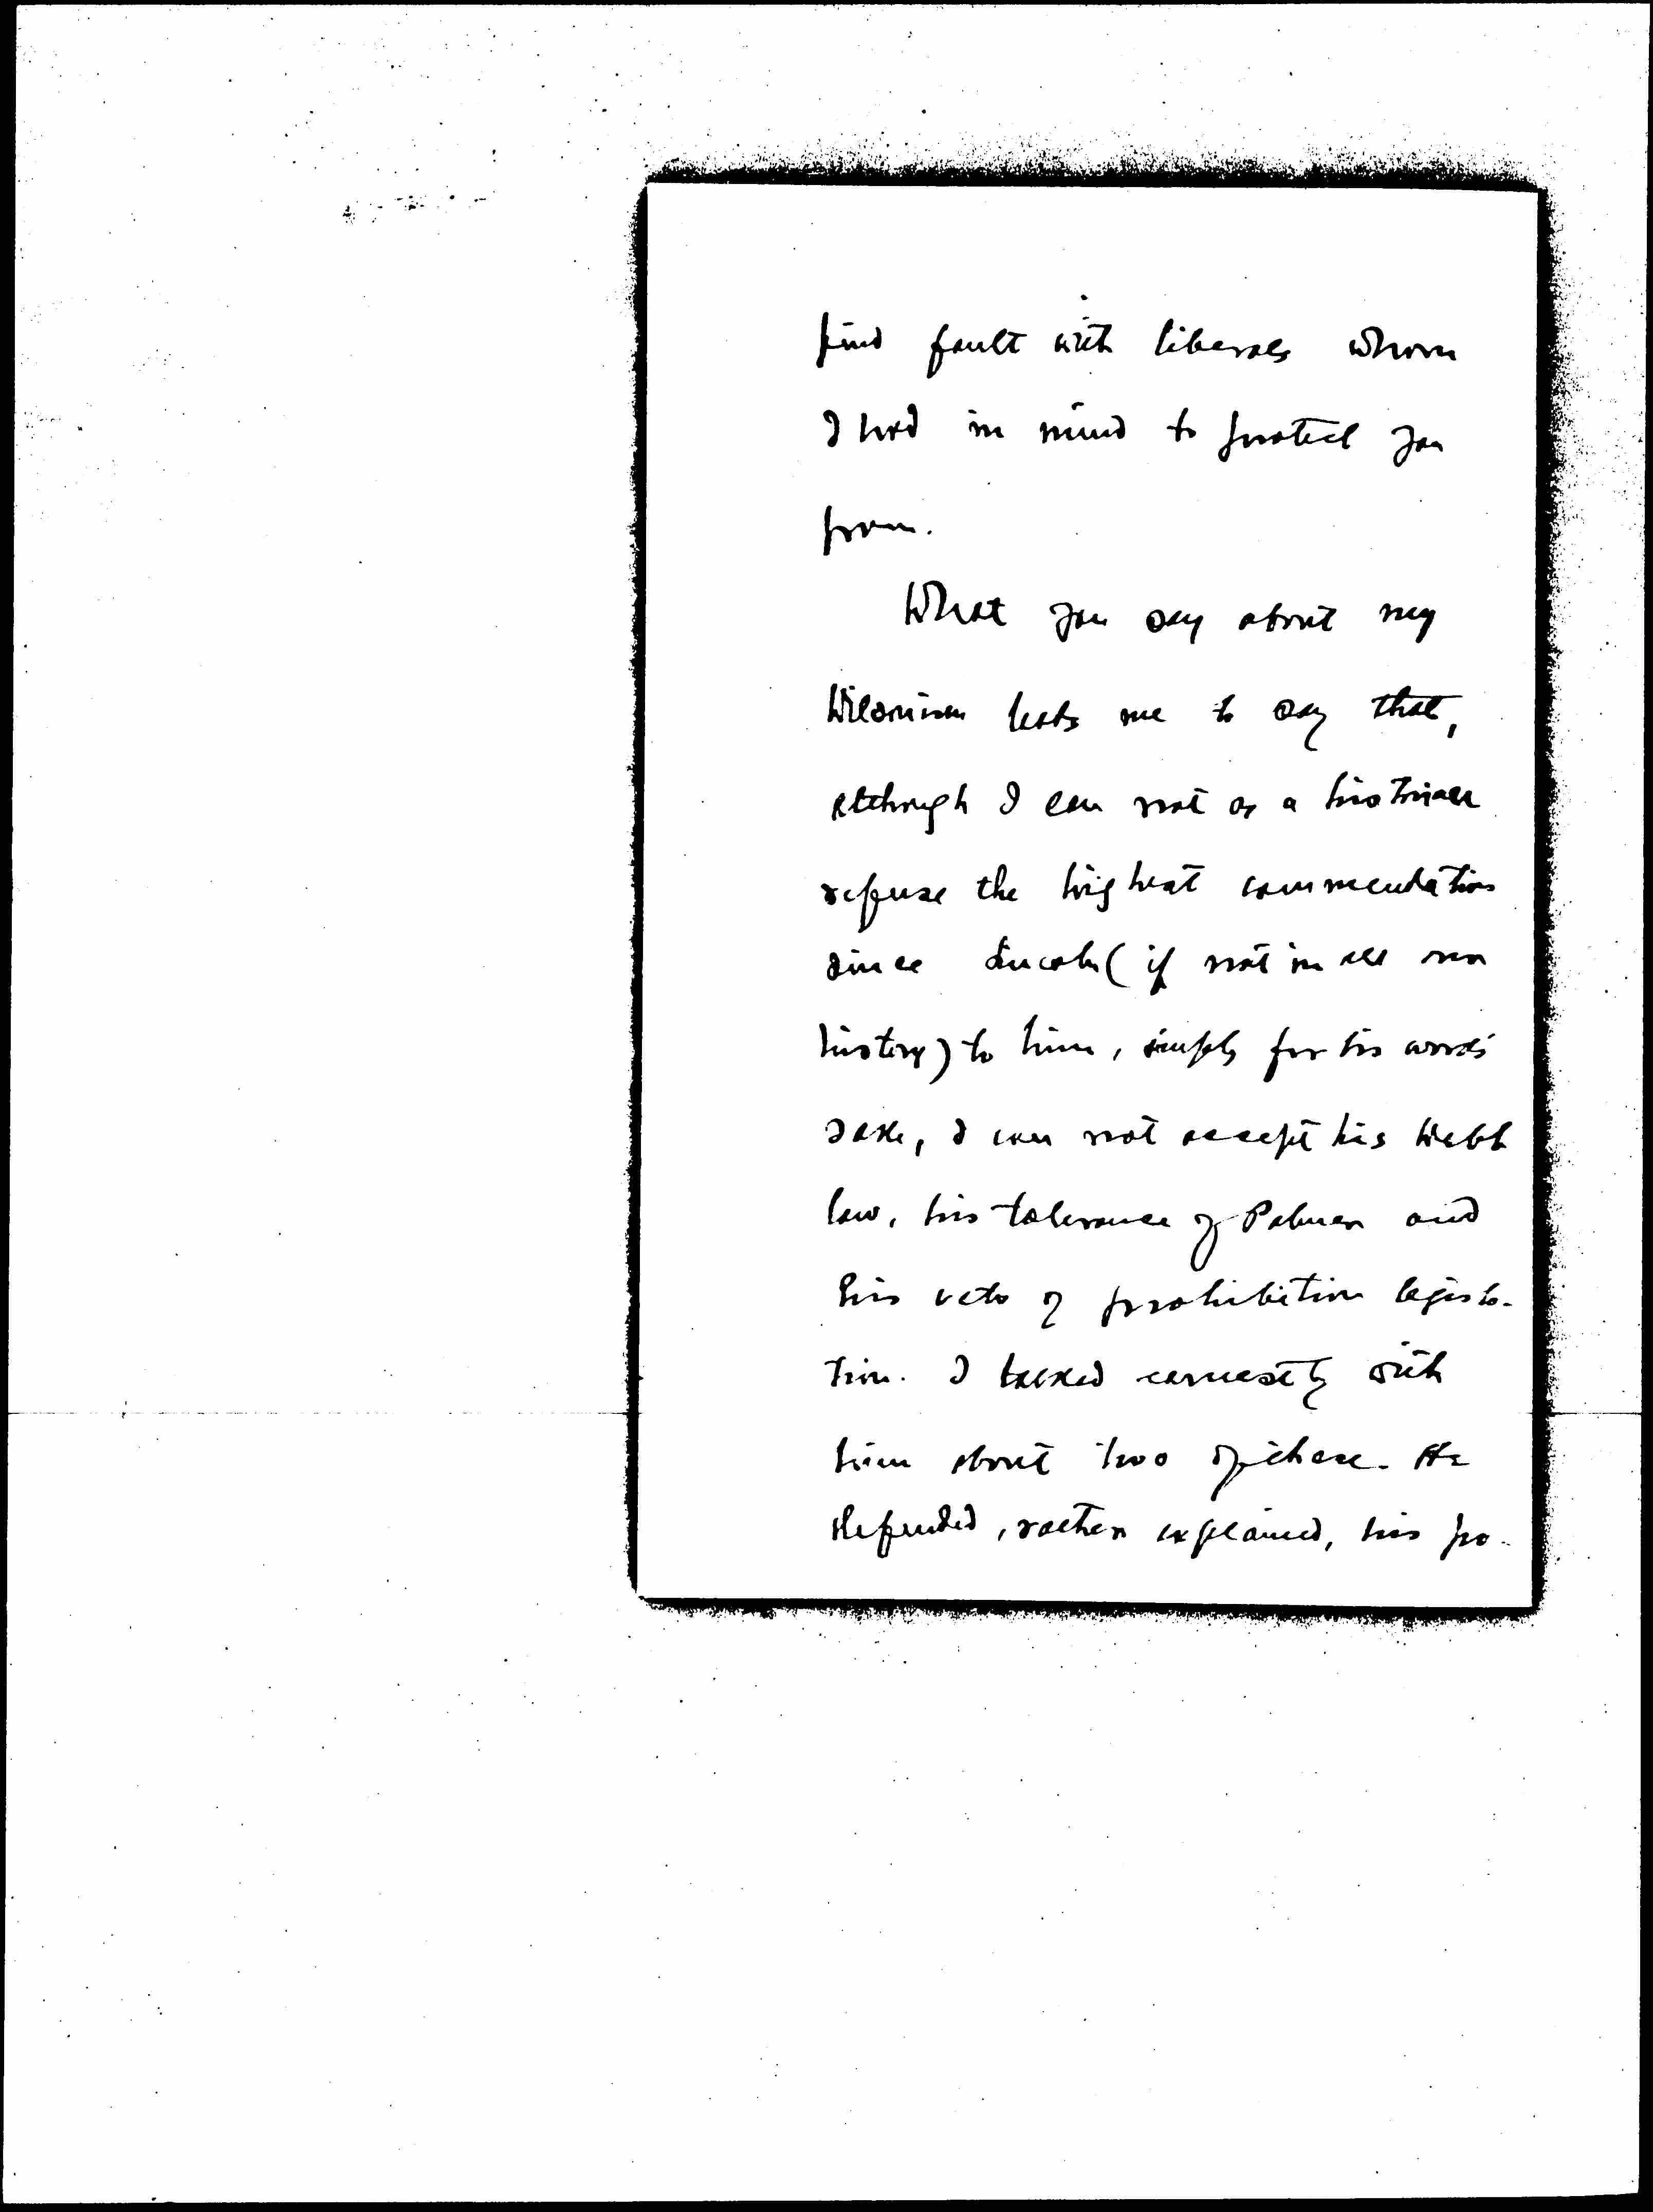 find fault with liberals whom
I had in mind to protect you
from.
What you say about my
Wilsonism leads me to say that,
although I can not as a historian
refuse the highest commendation
since Lincoln (if not in all our
history) to him, simply for his words'
sake, I can not accept his Webb
law, his tolerance of Palmer and
his veto of prohibition legisla-
tion. I talked earnestly with
him about two of these. He
defended, rather explained, his po-